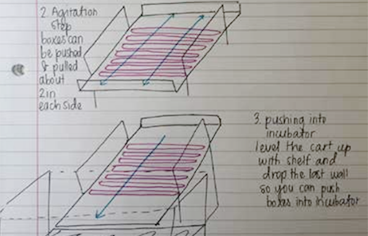 2. Agitation
step
boxes can
be pushed
& pulled
about
2in
each side
3. pushing into
incubator
level the cart up
with shelf and
drop the last wall
so you can push
boxes into incubator